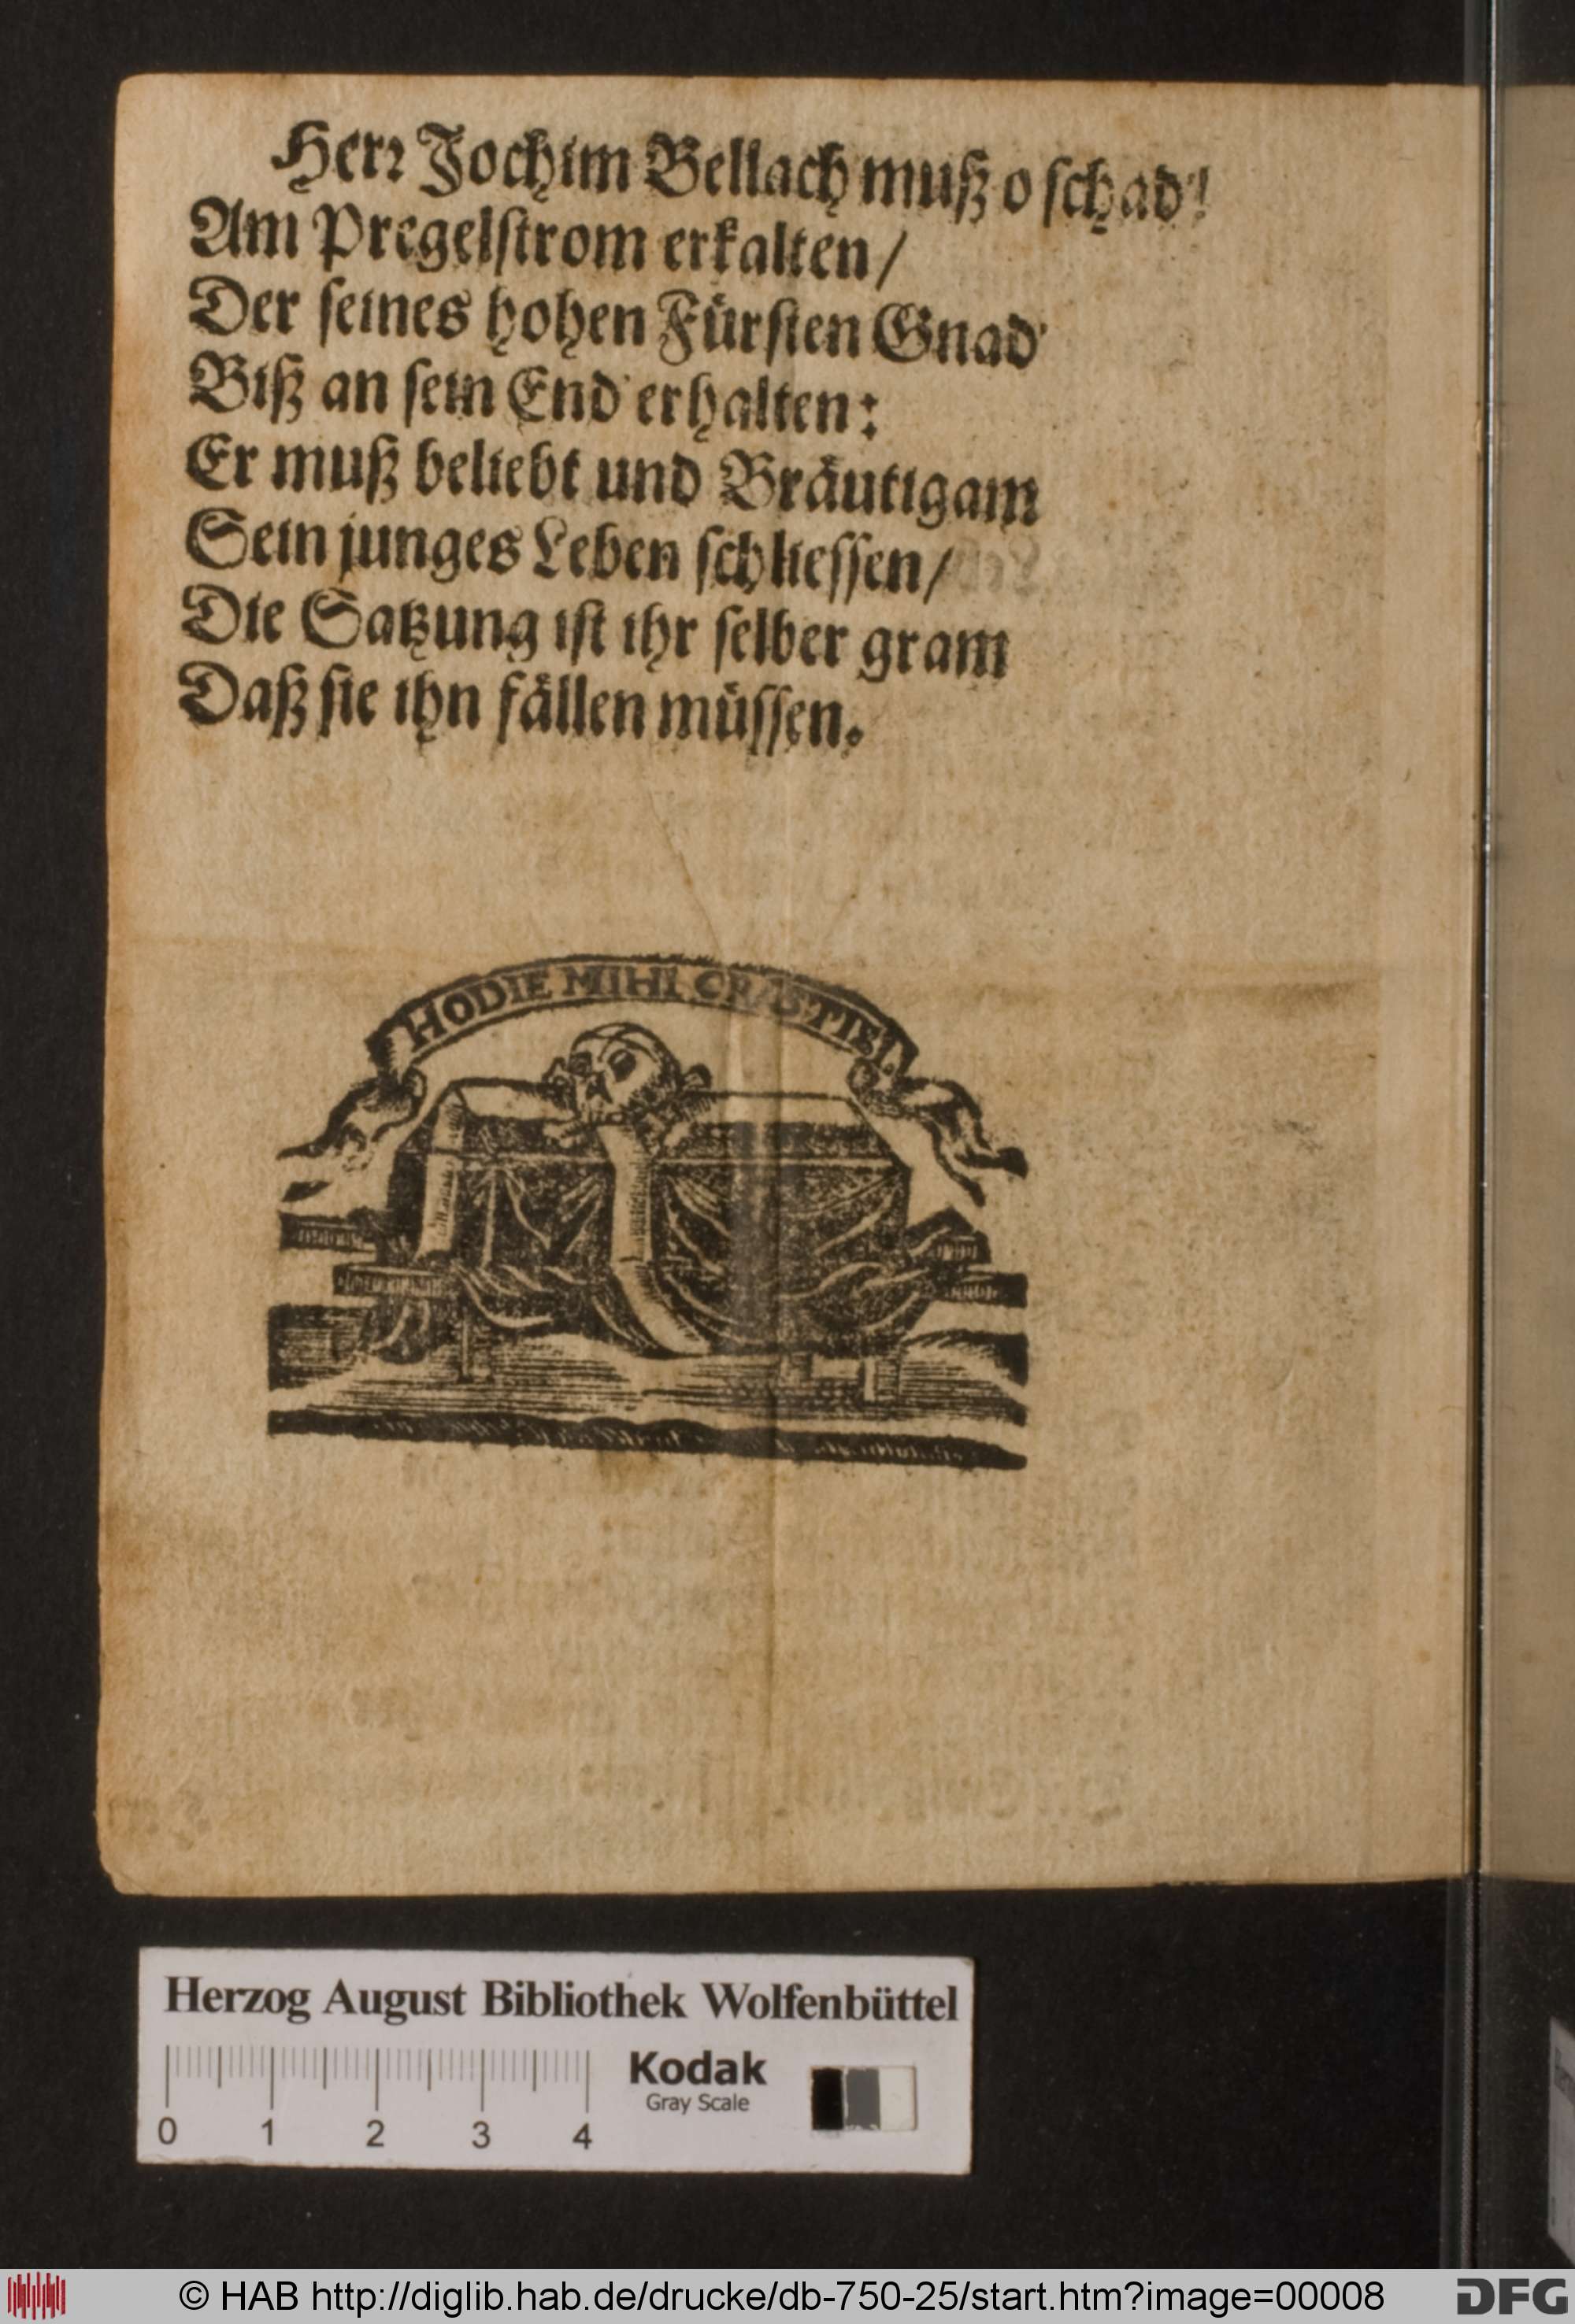 Herꝛ Jochim Bellach muß o schad'!
Am Pregelstrom erkalten/
Der seines hohen Fürsten Gnad'
Biß an sein End' erhalten:
Er muß beliebt und Bräutigam
Sein junges Leben schliessen/
Die Satzung ist ihr selber gram
Daß sie ihn fällen müssen.
HODIE MIHI CRASTIBI
Herzog August Bibliothek Wolfenbüttel
Kodak
Gray Scale
0 1 2 3 4
© HAB http://diglib.hab.de/drucke/db-750-25/start.htm?image=00008
DFG